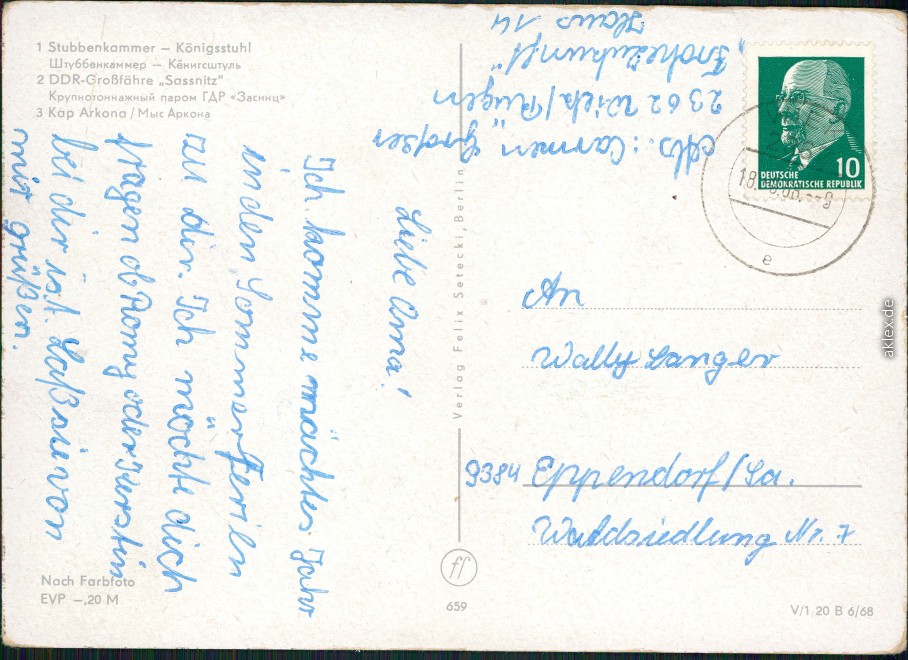 1 Stubbenkammer – Königsstuhl
Штуббенкаммер – Кёнигсштуль
2 DDR-Großfähre „Sassnitz"
Крупнотоннажный паром ГДР «Засниц»
3 Kap Arkona / Мыс Аркона
Abs.: Carmen Großer
2362 Wiek/Rügen
„Frohe Zukunft"
Haus 14
Liebe Oma!
Ich komme nächtes Jahr
in den Sommerferien
zu dir. Ich möchte dich
fragen ob Romy oder Kerstin
bei dir ist. Laß sie von
mir grüßen.
Verlag Felix Setecki, Berlin
DEUTSCHE
DEMOKRATISCHE REPUBLIK
10
18.
e
An
Wally Langer
9384 Eppendorf/Sa.
Waldsiedlung Nr. 7
Nach Farbfoto
EVP –,20 M
ff
659
V/1 20 B 6/68
aklex.de